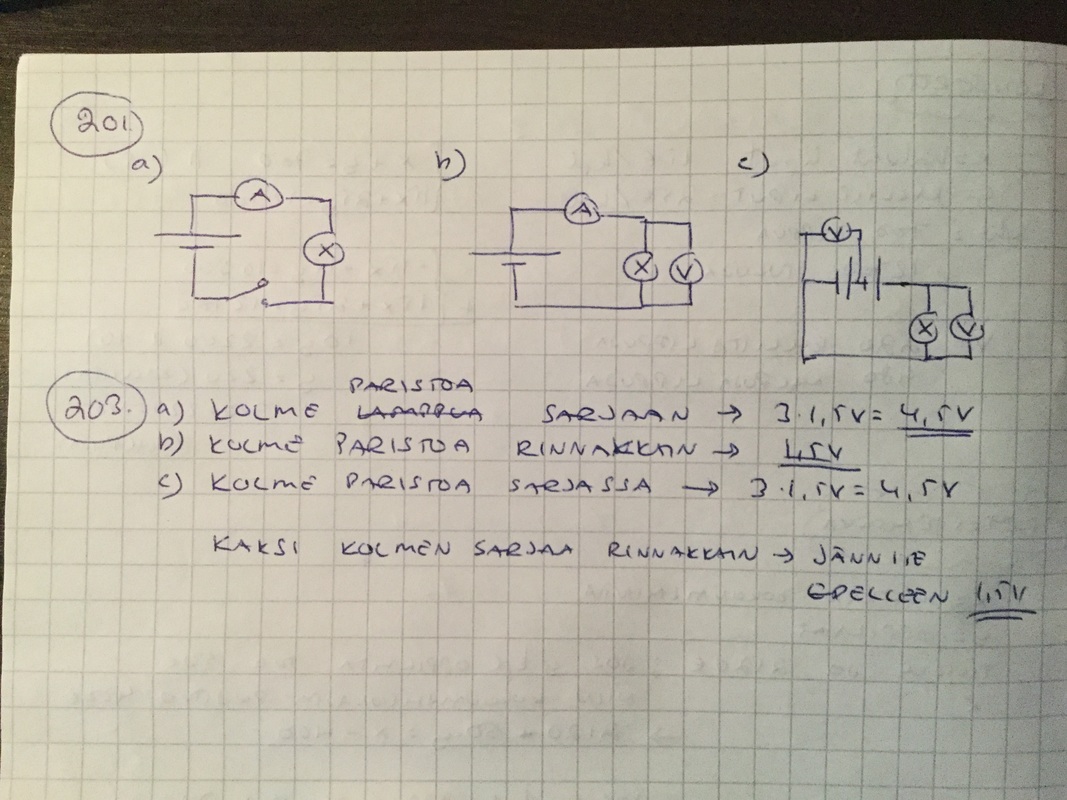 201.
a) b) c)
A A V
X X V X V
PARISTOA
203. a) KOLME SARJAAN → 3·1,5V = 4,5V
b) KOLME PARISTOA RINNAKKAIN → 1,5V
c) KOLME PARISTOA SARJASSA → 3·1,5V = 4,5V
KAKSI KOLMEN SARJAA RINNAKKAIN → JÄNNITE
EDELLEEN 1,5V